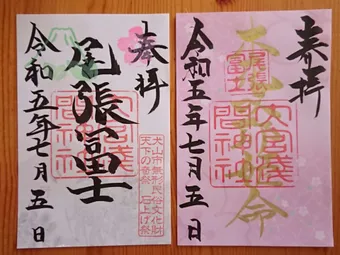 奉拝
尾張冨士
大宮浅
間神社
令和五年七月五日
犬山市無形民俗文化財
天下の奇祭 石上げ祭
奉拝
尾張
冨士
大宮浅
間神社
令和五年七月五日